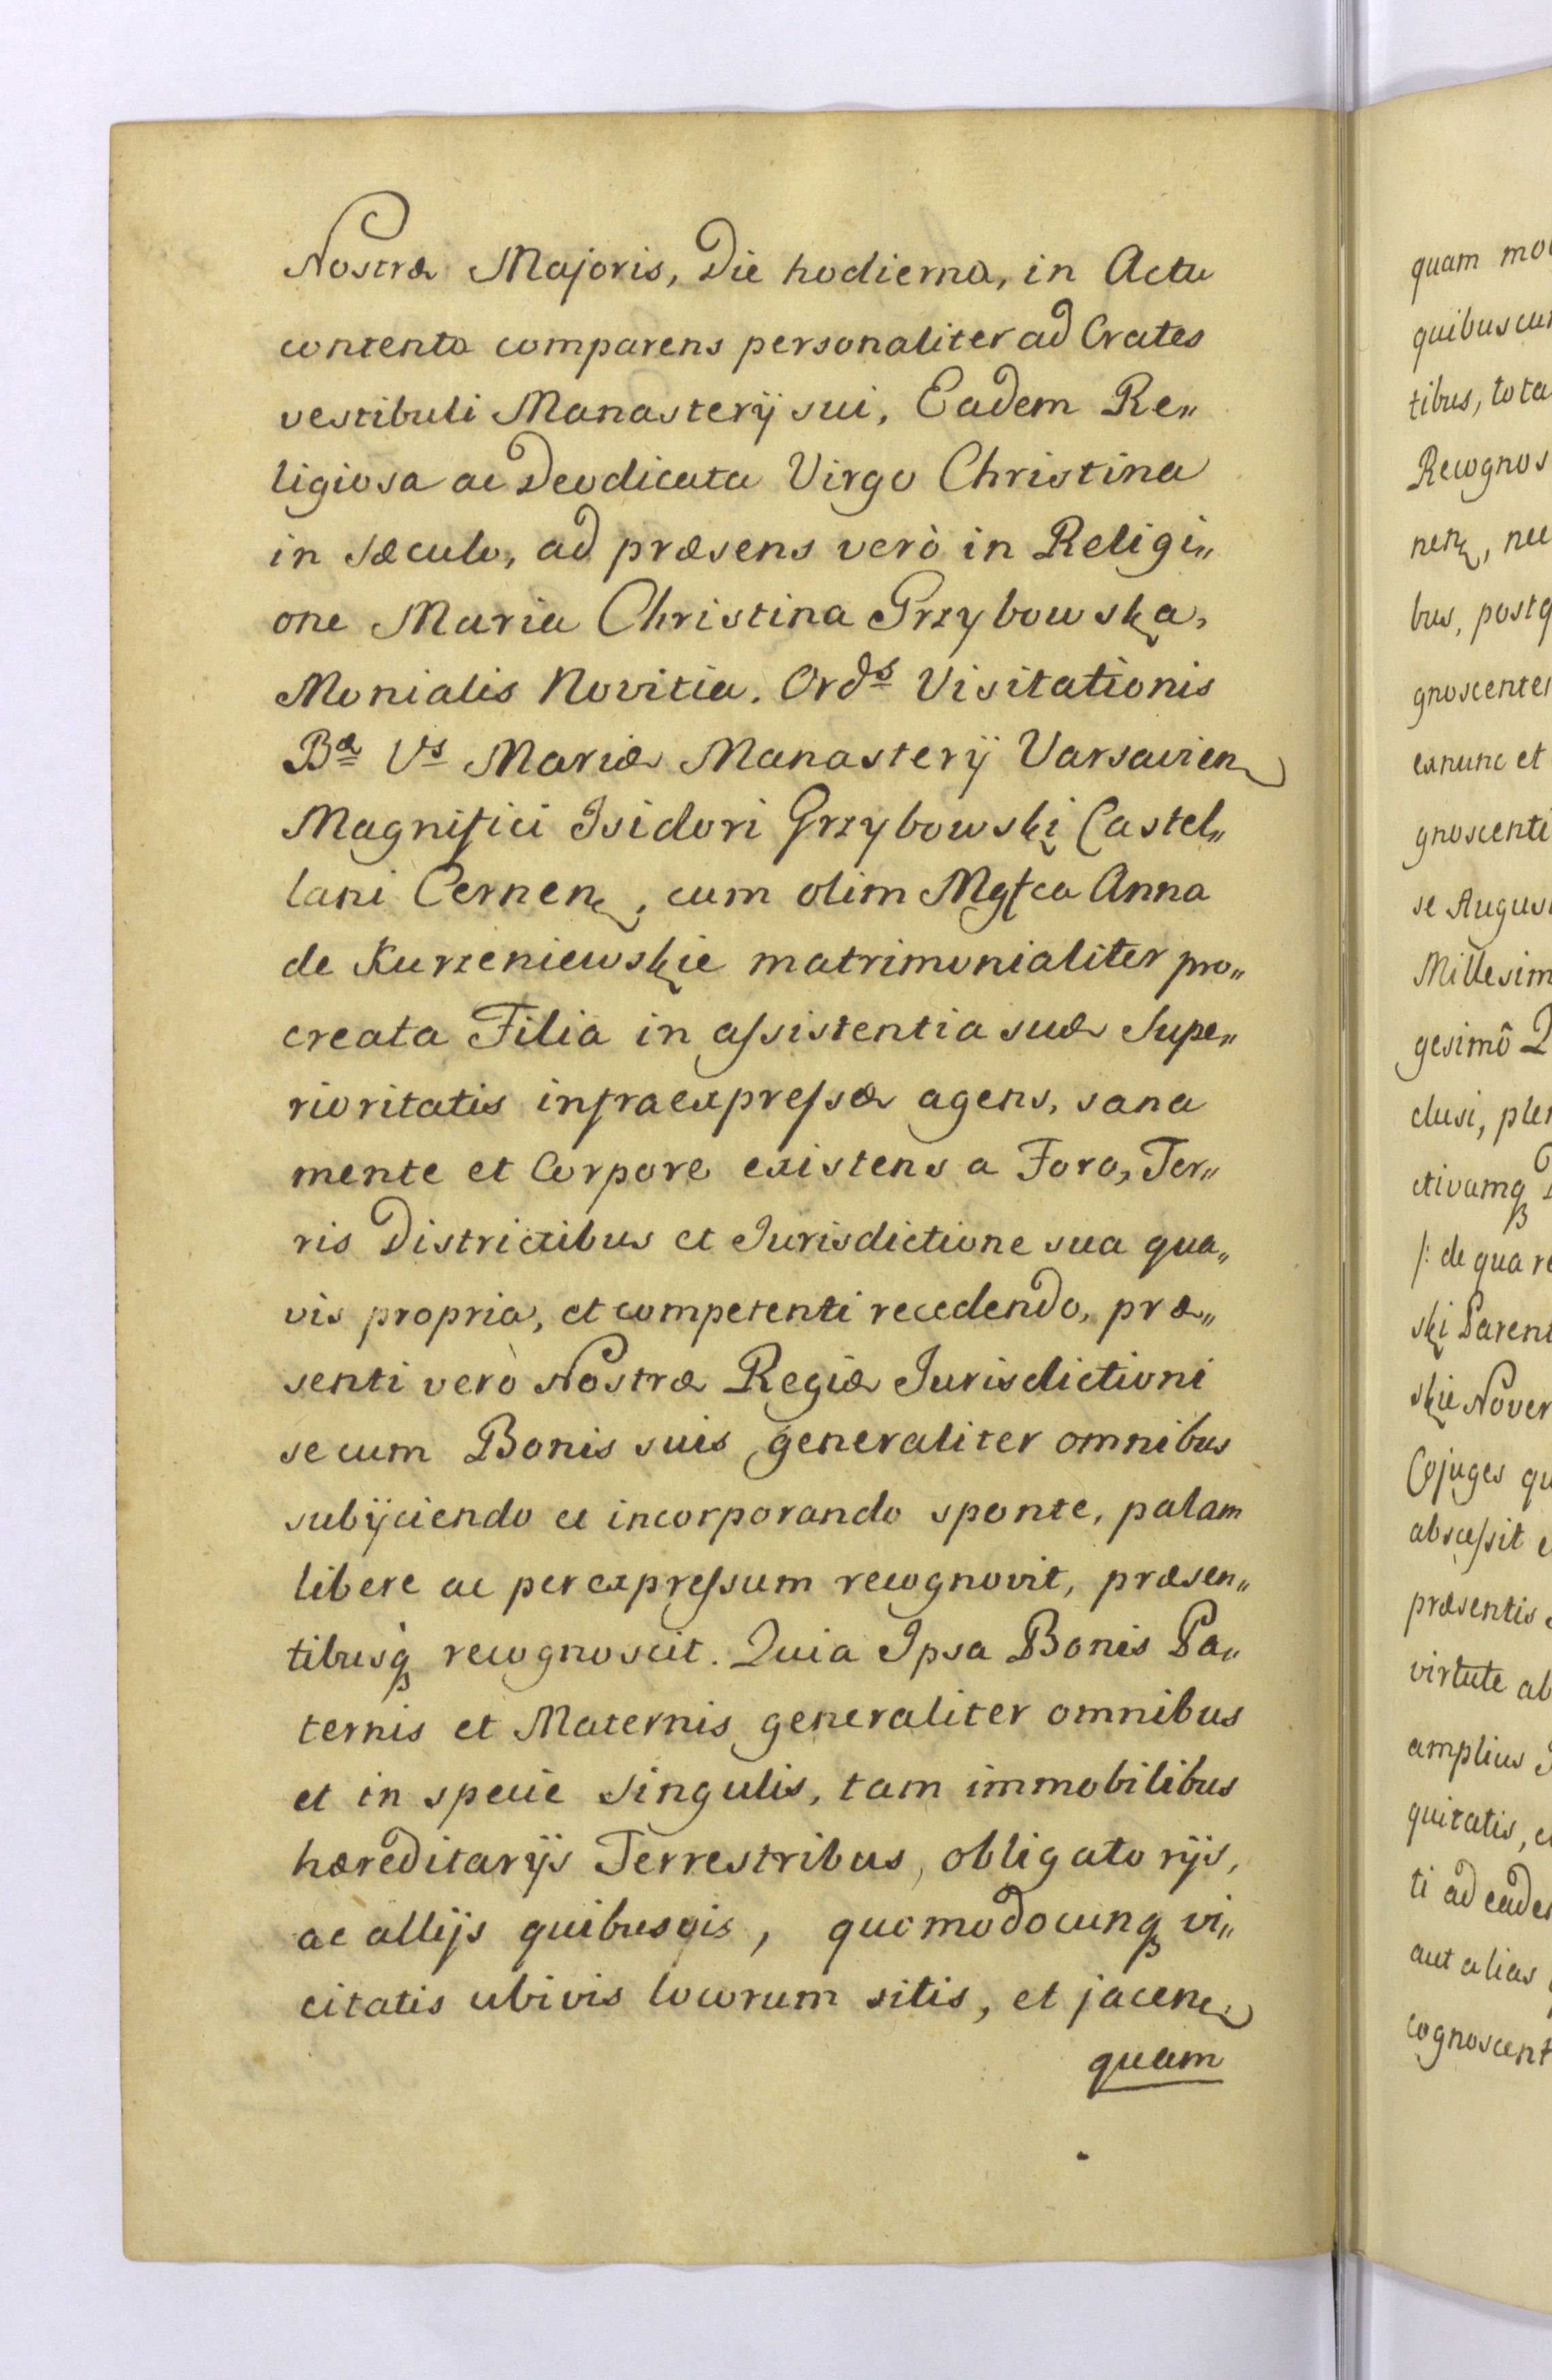 Nostræ Majoris, Die hodierna, in Actu
contento comparens personaliter ad Crates
vestibuli Manasterÿ sui, Eadem Re„
ligiosa ac Deodicata Virgo Christina
in sæculo, ad præsens verò in Religi„
one Maria Christina Grzybowska,
Monialis Novitia. Ordˢ Visitationis
Bæ Vˢ Mariæ Manasterÿ Varsavien
Magnifici Isidori Grzybowski Castel„
lani Cernen, cum olim Mgfca Anna
de Kurzeniewskie matrimonialiter pro„
creata Filia in aſsistentia suæ Supe„
rioritatis infraexpreſsæ agens, sana
mente et Corpore existens a Foro, Ter„
ris Districtibus et Jurisdictione sua qua„
vis propria, et competenti recedendo, præ„
senti verò Nostræ Regiæ Jurisdictioni
se cum Bonis suis generaliter omnibus
subÿciendo et incorporando sponte, palam
libere ac per expreſsum recognovit, præsen„
tibusq recognoscit. Quia Ipsa Bonis Pa„
ternis et Maternis generaliter omnibus
et in specie singulis, tam immobilibus
hæreditarÿs Terrestribus, obligatorÿs,
ac allÿs quibusvis, quomodocunq vi„
citatis ubivis locorum sitis, et jacen
quam
quam
tibus, tota
bus,
exnunc et
se
clusi,
/: de qua
ski
Cojuges
præsentis
virtute
amplius
quitatis,
ti ad
aut alias